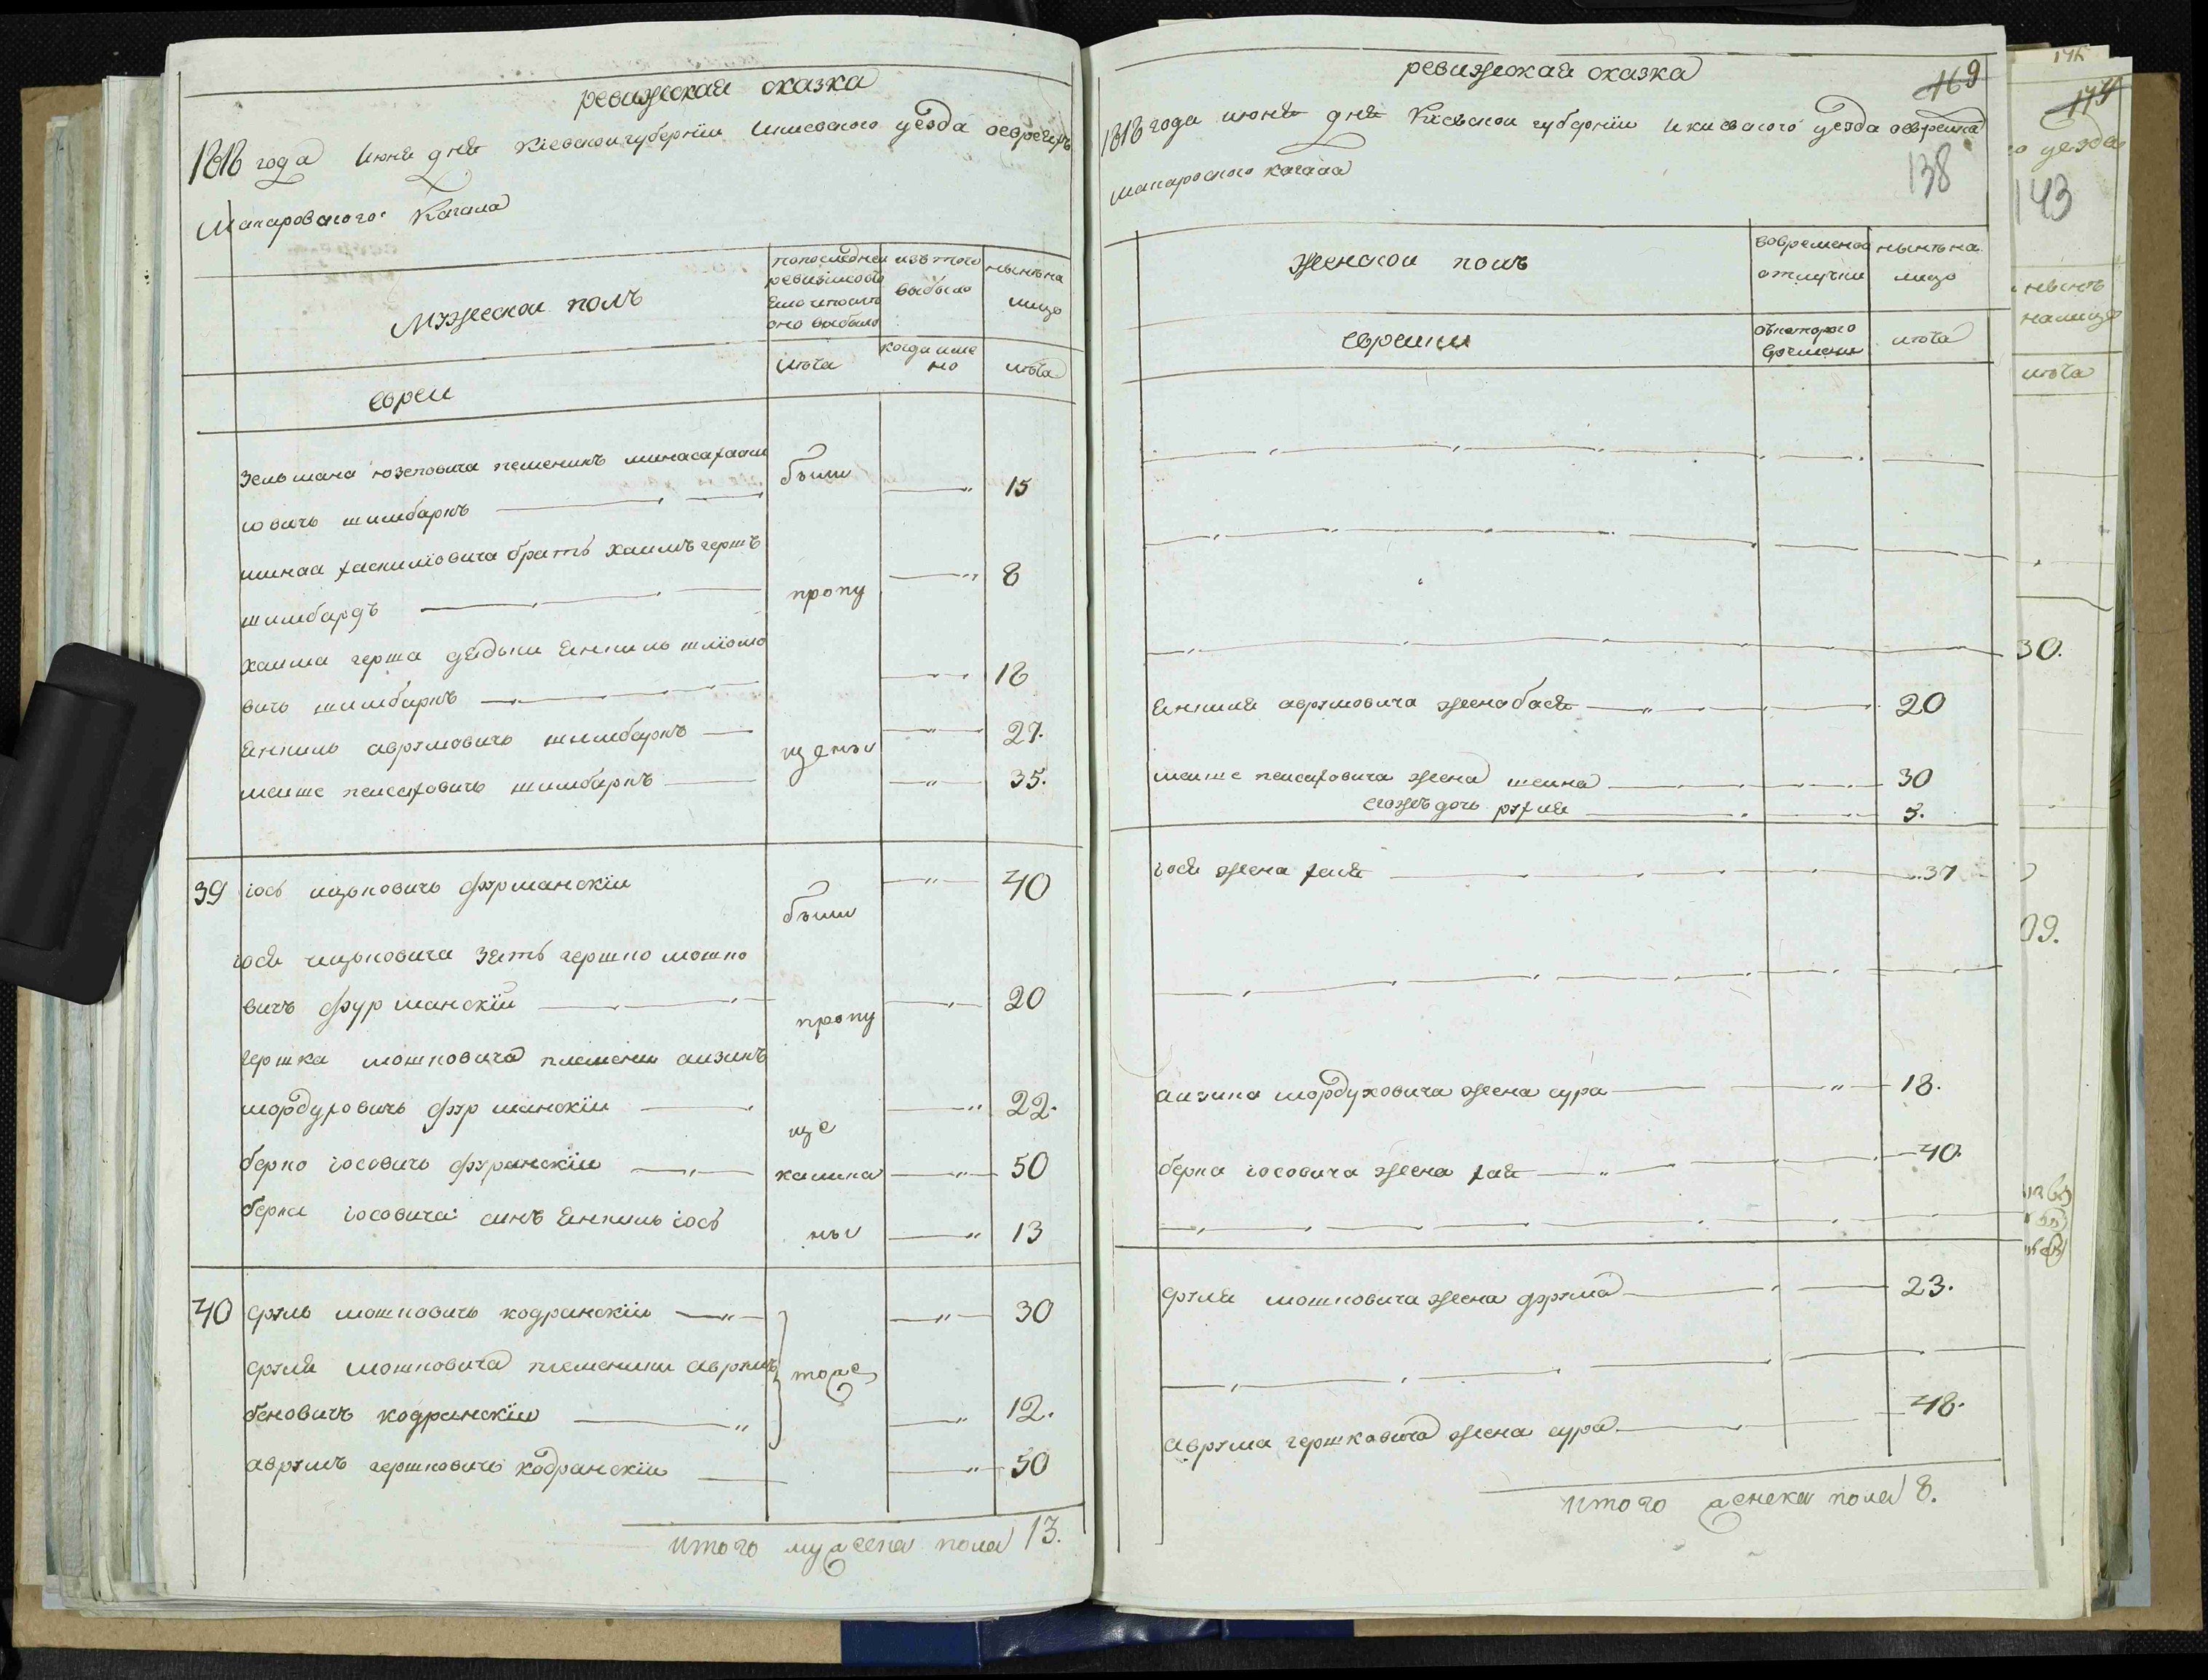 ревижская сказка
1818 года июня дня Киевской губернии Икиевского уезда оевреяхъ
Макаровского Кагала
Мужеской полъ
по последней ревизии собы ело ипосле оно выбыло
изъ того выбыло
нынѣ на лицо
евреи
лѣта
когда име но
лѣта
Зельмана юзеповича племеникъ
ювичь шимбаркъ
были
15
брать хаимъ гершъ
шимбардъ
пропу
8
хаима герша дядьки Енкиль шлiомо
вичь шимбаркъ
18
Енкиль аврумовичь шимбаркъ
щены
27.
меише пейсаховичь шимбаркъ
35.
39 iось ицьковичь фурманскiи
были
40
iося ицьковича зять гершко мошко
вичъ фурманскiй
пропу
20
гершка мошковича племени аизикъ
мордуховичь фурманскiи
ще
22.
берко iосовичь фуранскiи
калиха
50
берка iосовича синъ Енкиль iось
ны
13
40 сруль мошковичь кодранскiи
30
сруля мошковича племеники аврумъ
тоже
беновичъ кодранскiи
12.
аврумъ гершковичь кодранскiи
50
итого мужеска пола 13.
ревижская сказка
169
1818 года июня дня Киевской губернiи Икиевского уезда оевреяхъ
138
макаровского кагала
женской полъ
вовременой отлучки
нынѣ на лицо
еврейки
съкоторого времени
лѣта
Енкиля аврумовича жена бася
20
меише пейсаховича жена шеина
30
егожъ дочь рухля
3.
iося жена хая
37
аизика мордуховича жена сура
18.
берка iосовича жена хая
40.
сруля мошковича жена фрума
23.
аврума гершковича жена сура
48.
итого женска пола 8.
174
уезда
143
нынѣ
налицо
лѣта
30.
09.